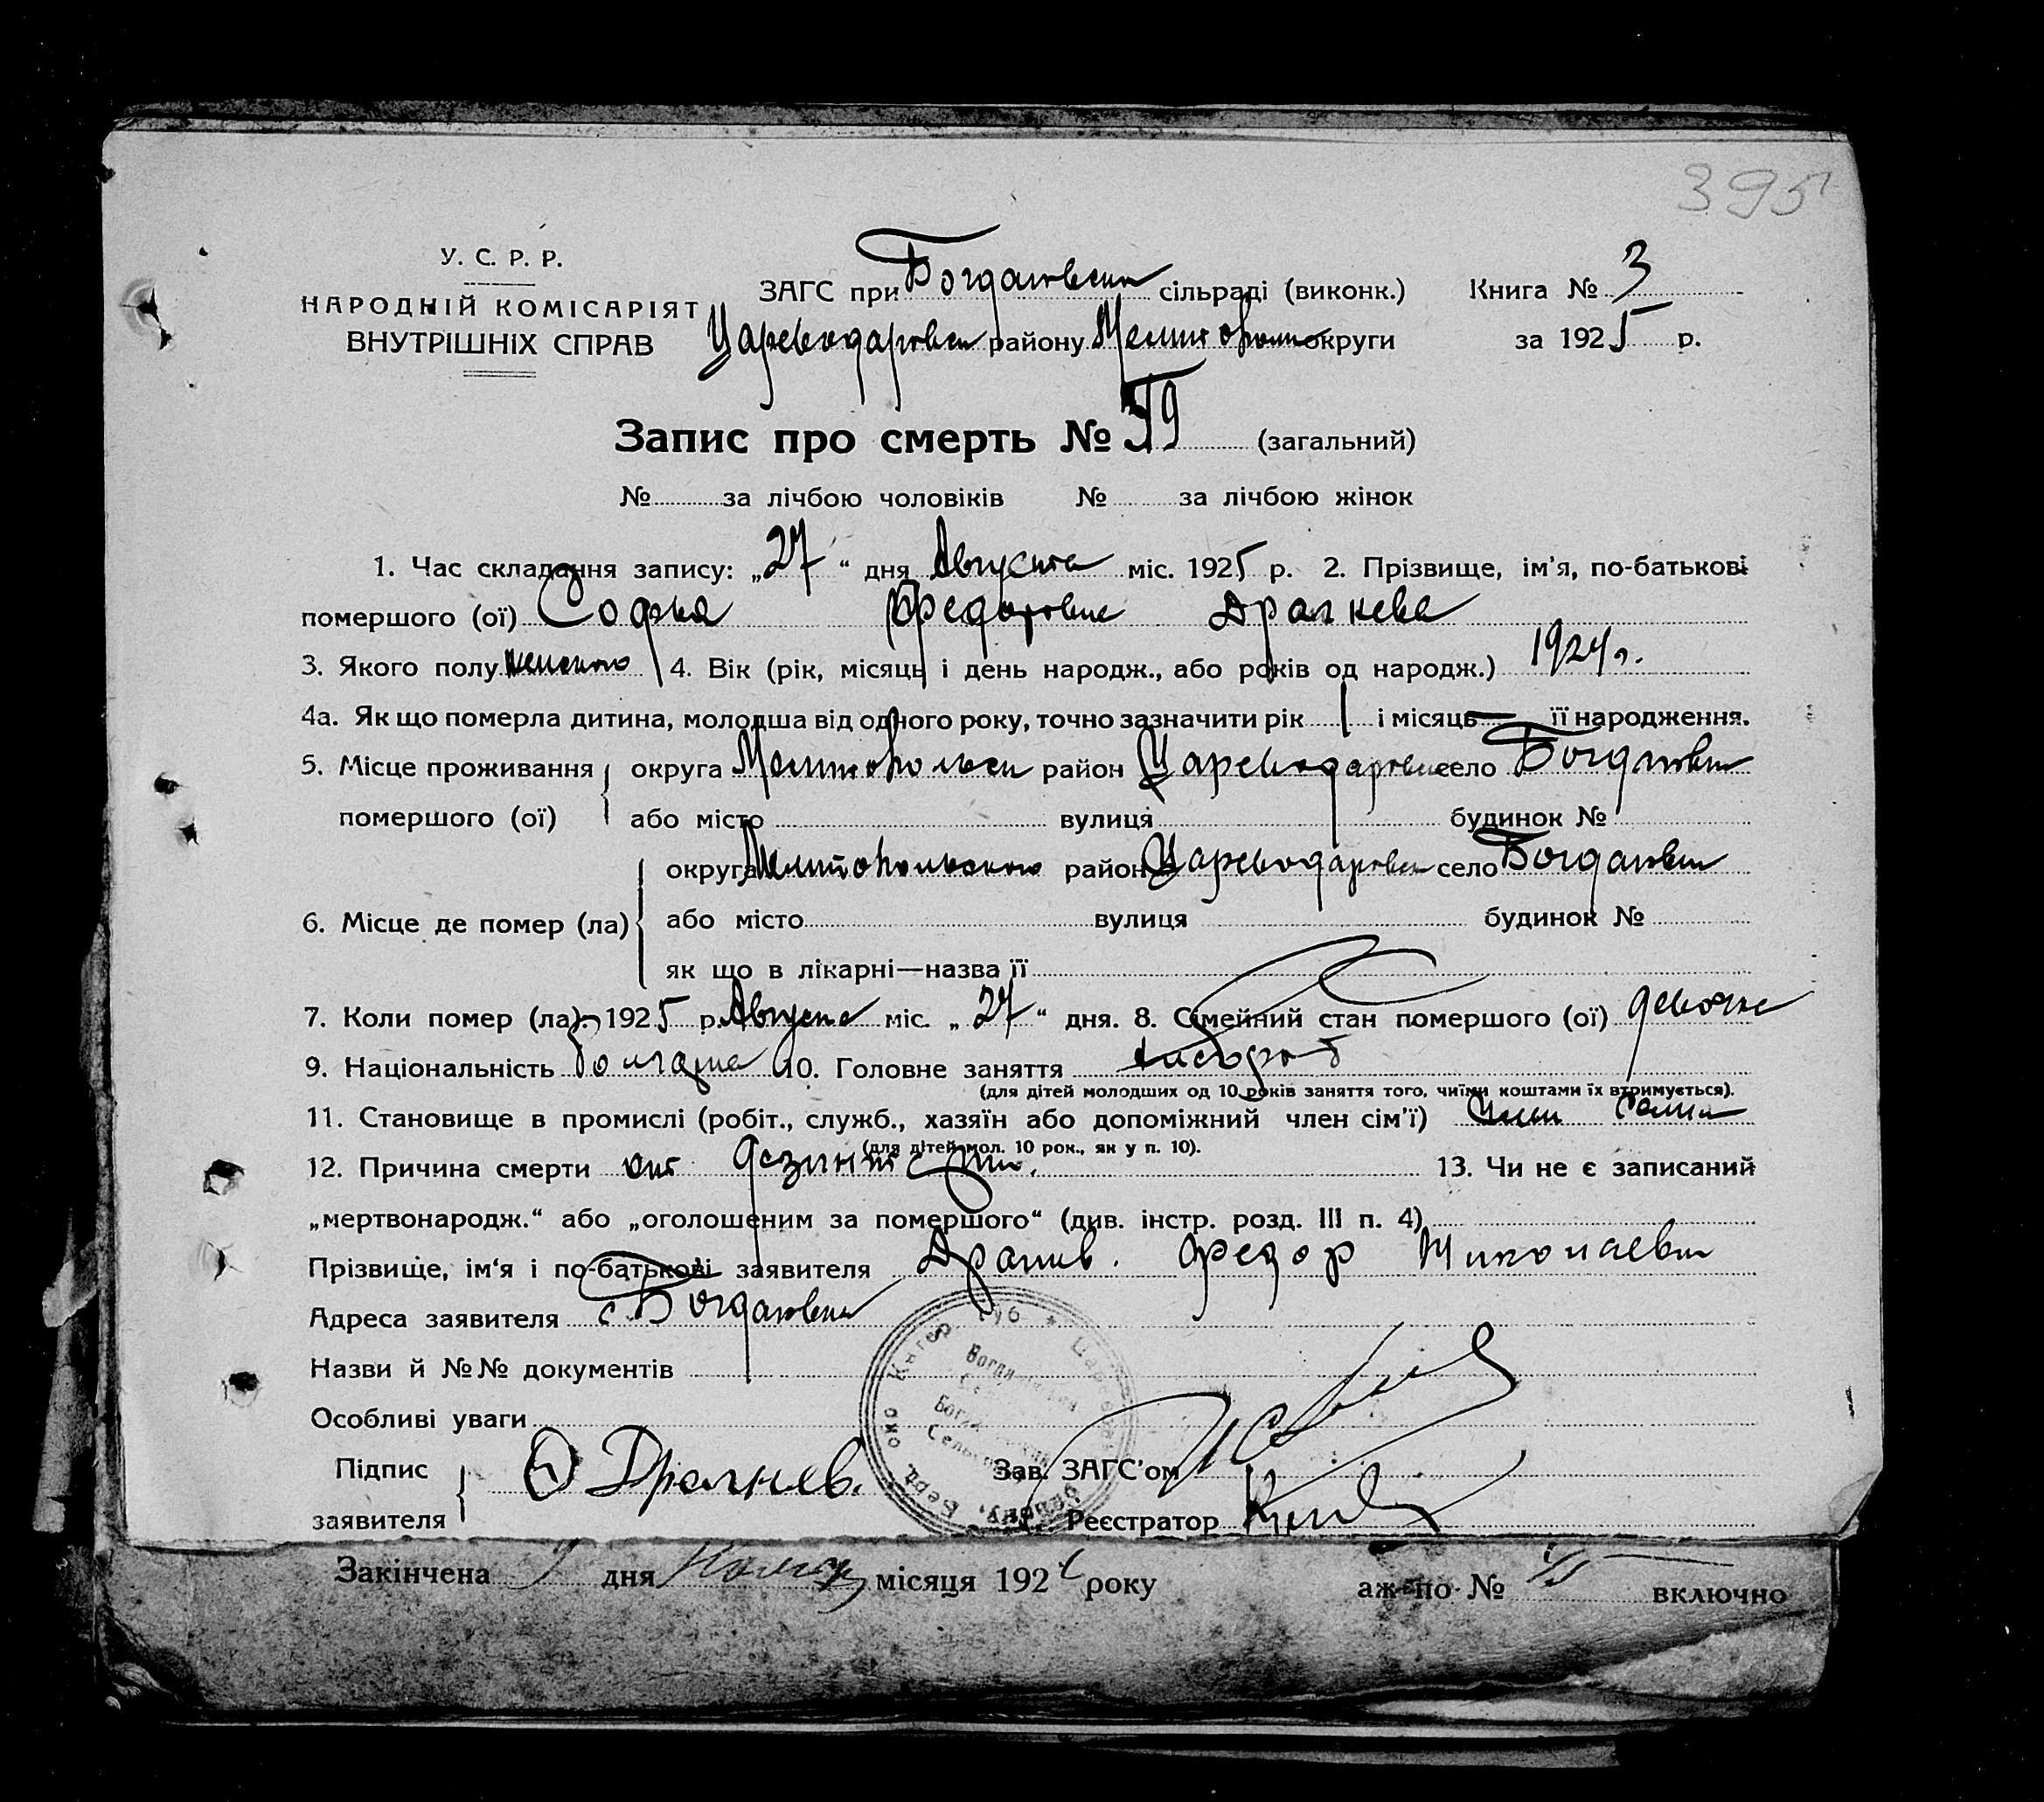 395
У. С. Р. Р.
НАРОДНІЙ КОМІСАРІЯТ
ВНУТРІШНІХ СПРАВ
ЗАГС при Богдановским сільраді (виконк.)
Цареводаровск району Мелитопольск округи
Книга № 3
за 1925 р.
Запис про смерть № (загальний)
№ за лічбою чоловіків № за лічбою жінок
1. Час складання запису: „27“ дня Августа міс. 1925 р. 2. Прізвище, ім'я, по-батькові
помершого (ої) Софья Федоровна Драгнева
3. Якого полу женского 4. Вік (рік, місяць і день народж., або років од народж.) 1924 г.
4а. Як що померла дитина, молодша від одного року, точно зазначити рік 1 і місяць — її народження.
5. Місце проживання округа Мелитопольск район Цареводаровск село Богдановка
помершого (ої) або місто вулиця будинок №
округа Мелитопольского район Цареводаровск село Богдановка
6. Місце де помер (ла) або місто вулиця будинок №
як що в лікарні—назва її
7. Коли помер (ла): 1925 р. Августа міс. „27“ дня. 8. Сімейний стан помершого (ої) девочка
9. Національність болгарка 10. Головне заняття хлебороб
(для дітей молодших од 10 років заняття того, чиїми коштами їх втримується).
11. Становище в промислі (робіт., служб., хазяїн або допоміжний член сім'ї) член семьи
(для дітей мол. 10 рок., як у п. 10).
12. Причина смерти от дезинтерии. 13. Чи не є записаний
„мертвонародж.“ або „оголошеним за помершого“ (див. інстр. розд. III п. 4)
Прізвище, ім'я і по-батькові заявителя Федор Николаевич
Адреса заявителя с. Богдановка
Назви й №№ документів
Особливі уваги
Підпис
заявителя Ф Драгнев.
Зав. ЗАГС'ом
Реєстратор
Закінчена дня місяця 192 року аж по № включно